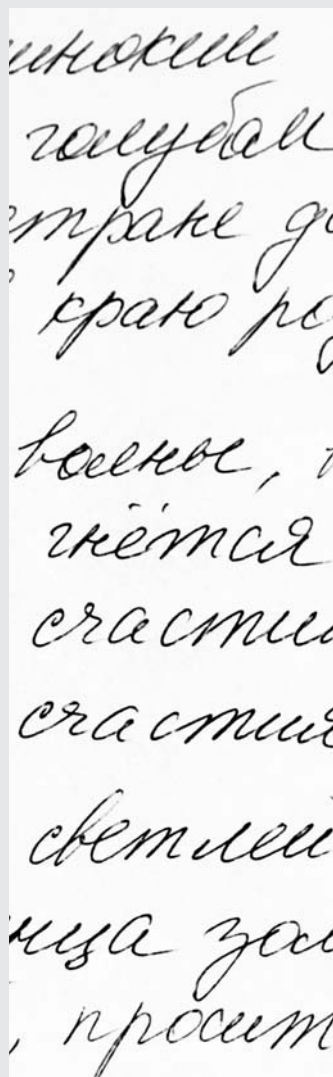 инокий
голубом
тране да
краю ро
волны,
гнётся
счасти
счастия
светлей
нца зол
, просит